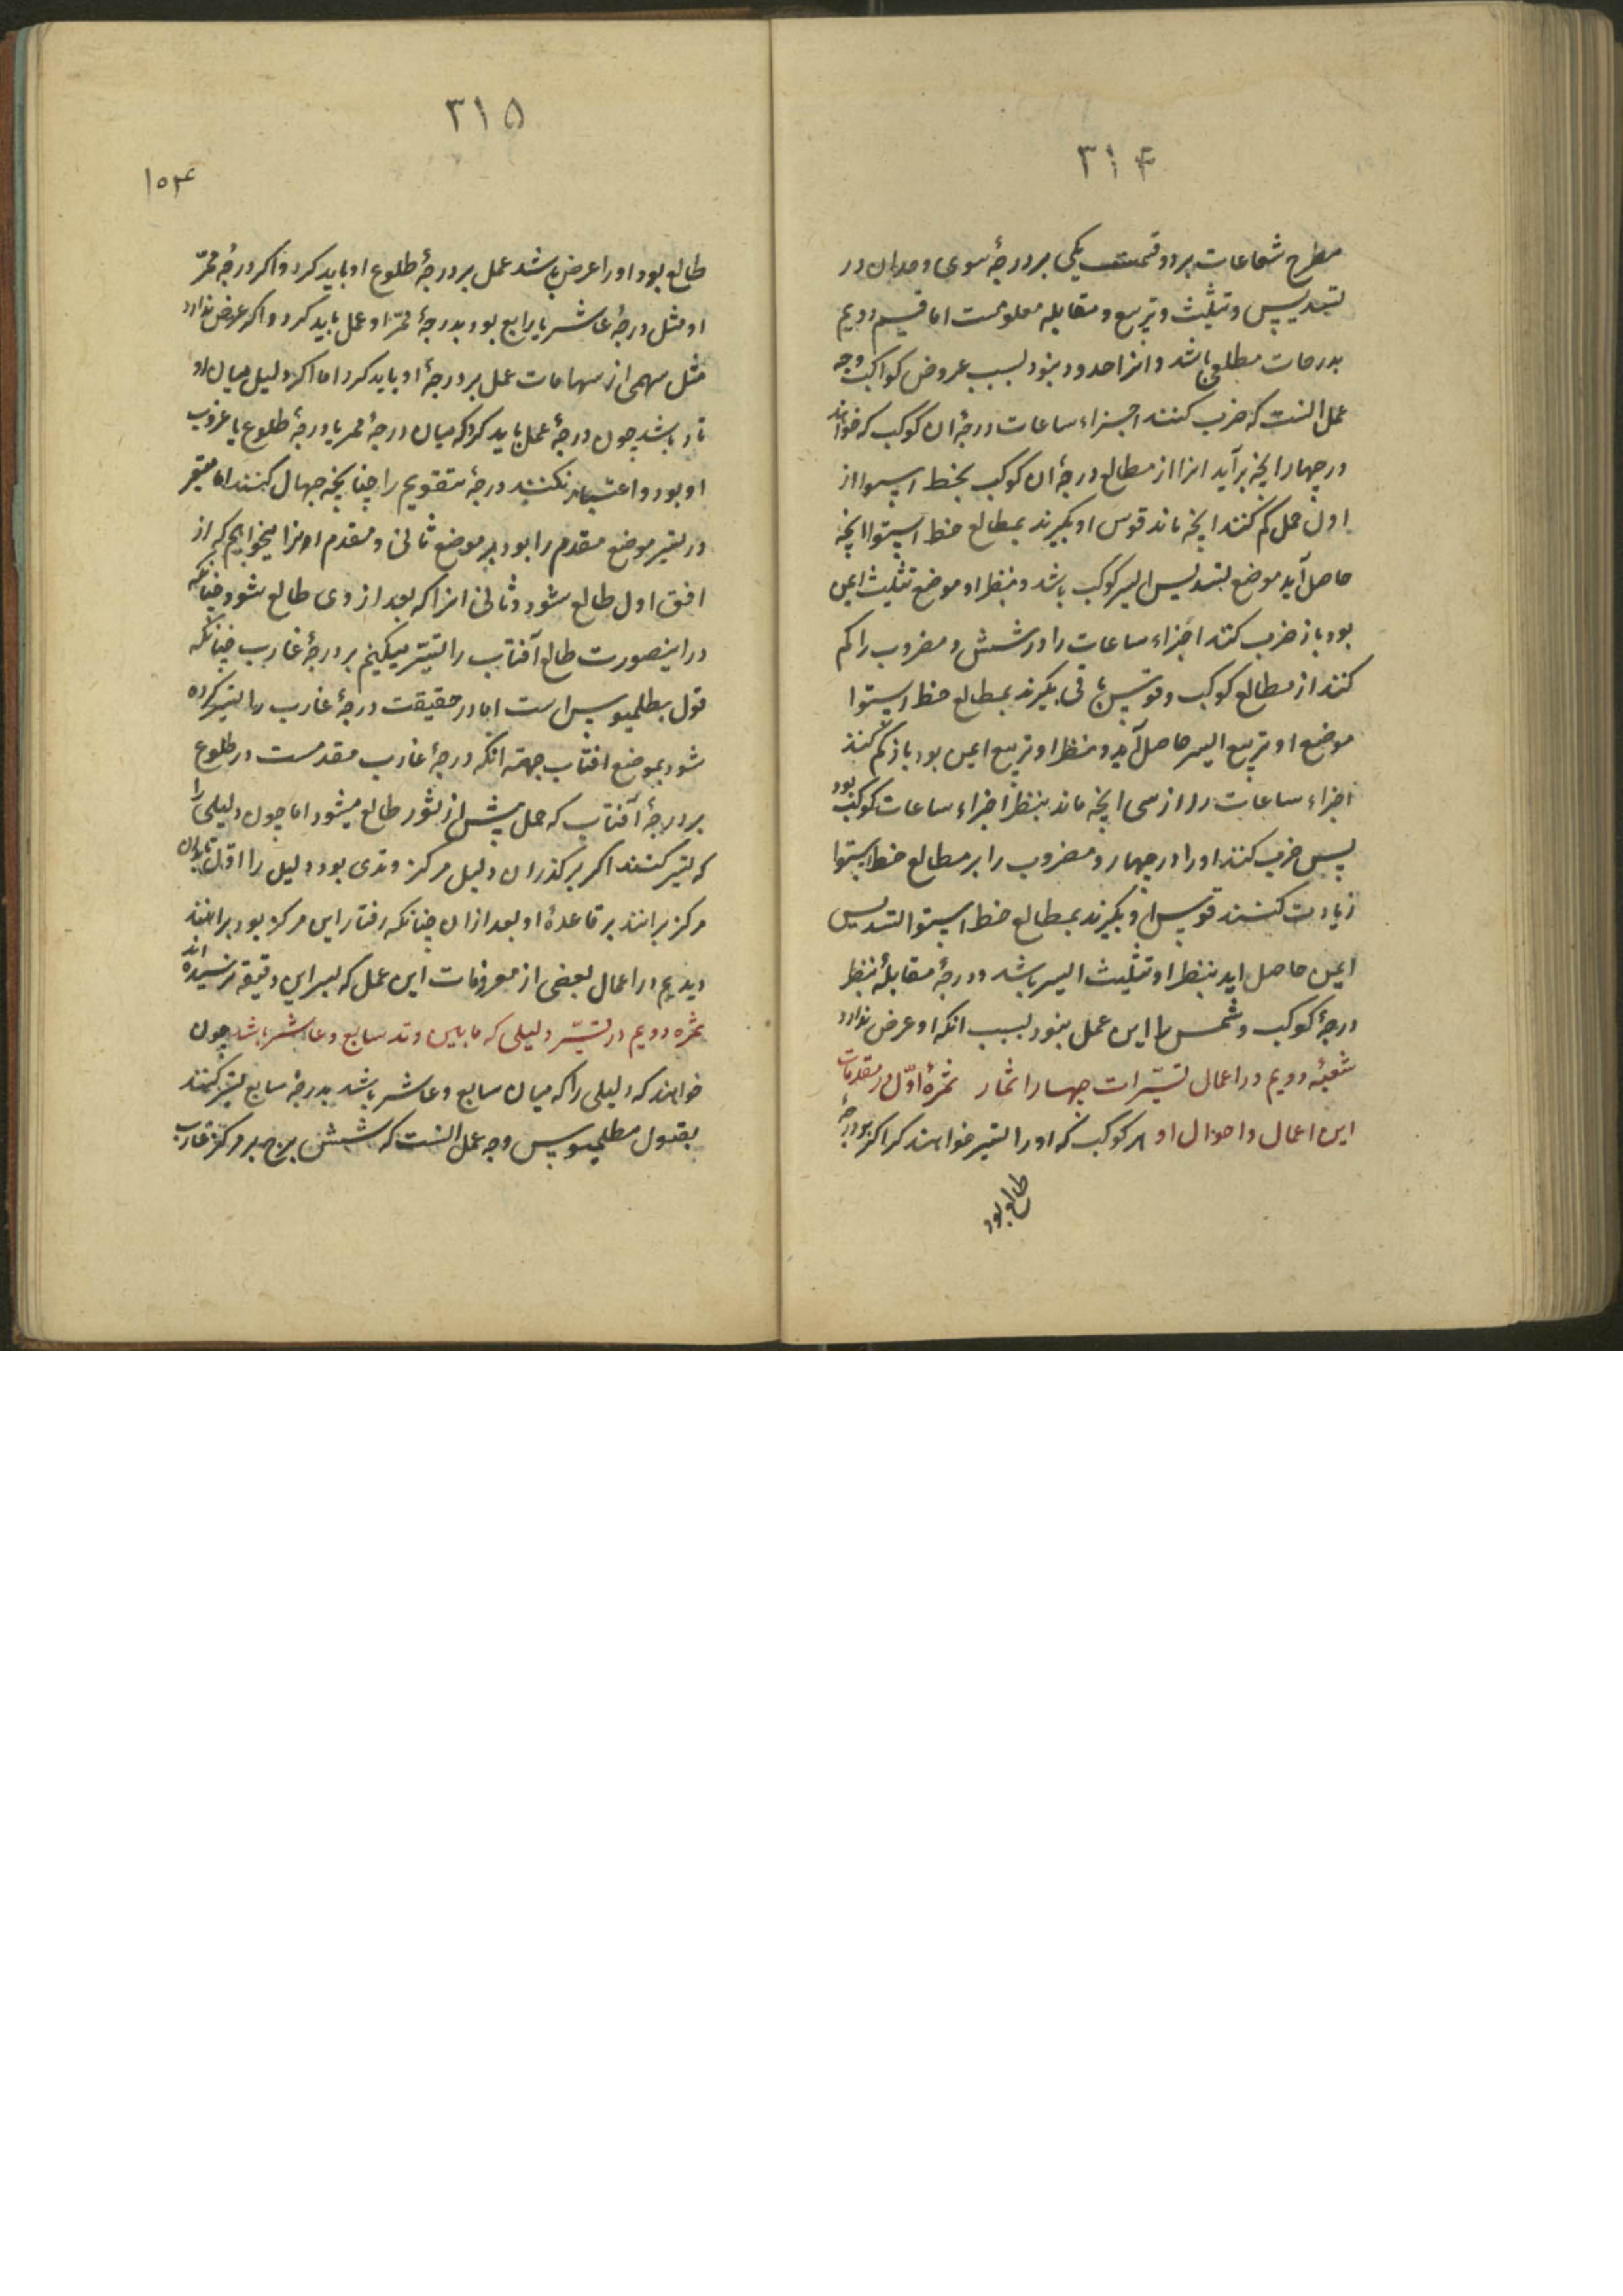 ۳۱۴
مطرح شعاعات بر دو قسمت یکی بر درجهٔ سوی و جدا آن در
تسدیس و تثلیث و تربیع و مقابله معلومست اما قسم دویم
بدرجات مطلعی باشد و انرا حدود نبود بسبب عروض کواکب وجه
عمل انست که ضرب کنند اجزاء ساعات درجهٔ ان کوکب که خواهند
در چهار انچه برآید انرا از مطالع درجهٔ ان کوکب بخط استوا از
اول حمل کم کنند انچه ماند قوس او بگیرند بمطالع خط استوا انچه
حاصل آید موضع تسدیس ایسر کوکب باشد و بنظر او موضع تثلیث ایمن
بود باز ضرب کنند اجزاء ساعات را در شش و مضروب را کم
کنند از مطالع کوکب و قوس باقی بگیرند بمطالع خط استوا
موضع او تربیع ایسر حاصل آید و بنظر او تربیع ایمن بود باز کم کنند
اجزاء ساعات را از سی انچه ماند بنظر اجزاء ساعات کوکب بود
پس ضرب کنند او را در چهار و مضروب را بر مطالع خط استوا
زیادت کنند قوس او بگیرند بمطالع خط استوا تسدیس
ایمن حاصل اید بنظر او تثلیث ایسر باشد و درجهٔ مقابلهٔ نظر
درجهٔ کوکب و شمس را این عمل نبود بسبب انکه او عرض ندارد
شعبهٔ دویم در اعمال تسیرات چهار اثمار ثمرهٔ اوّل در مقدمات
این اعمال و احوال او هر کوکب که او را تسیر خواهند کرد اکر بدرجهٔ
طالع بود
۳۱۵
۱۵۴
طالع بود او را عرض باشد عمل بر درجهٔ طلوع او باید کرد و اکر درجهٔ ممرّ
او مثل درجهٔ عاشر یا رابع بود بدرجهٔ ممرّ او عمل باید کرد و اکر عرض ندارد
مثل سهمی از سهامات عمل بر درجهٔ او باید کرد اما اکر دلیل میان دو
تد باشد چون درجهٔ عمل باید کرد که میان درجهٔ ممر یا درجهٔ طلوع یا غروب
او بود و اعتبار نکنند درجهٔ تقویم را چنانچه جهال کنند اما معتبر
در تسیر موضع مقدم را بود بر موضع ثانی و مقدم انرا میخواهیم که از
افق اول طالع شود و ثانی انرا که بعد از وی طالع شود چنانکه
در اینصورت طالع آفتاب را تسیّر میکنیم بر درجهٔ غارب چنانکه
قول بطلمیوس است اما در حقیقت درجهٔ غارب را تسیر کرده
شود بموضع افتاب جهة انکه درجهٔ غارب مقدمست در طلوع
بر درجهٔ آفتاب که حمل پیش از ثور طالع میشود اما چون دلیلی را
که تسیر کنند اکر بر کذر ان دلیل مرکز وتدی بود دلیل را اوّل تا بدان
مرکز برانند بر قاعدهٔ او بعد از ان چنانکه رفتار این مرکز بود برانند
دیدیم در اعمال بعضی از معروفات این عمل که بسر این دقیقه نرسیده اند
ثمره دویم در تسیّر دلیلی که مابین وتد سابع و عاشر باشد چون
خواهند که دلیلی را که میان سابع و عاشر باشد بدرجهٔ سابع تسیر کنند
بقول بطلمیوس وجه عمل انست که شش برج بر مرکز غارب